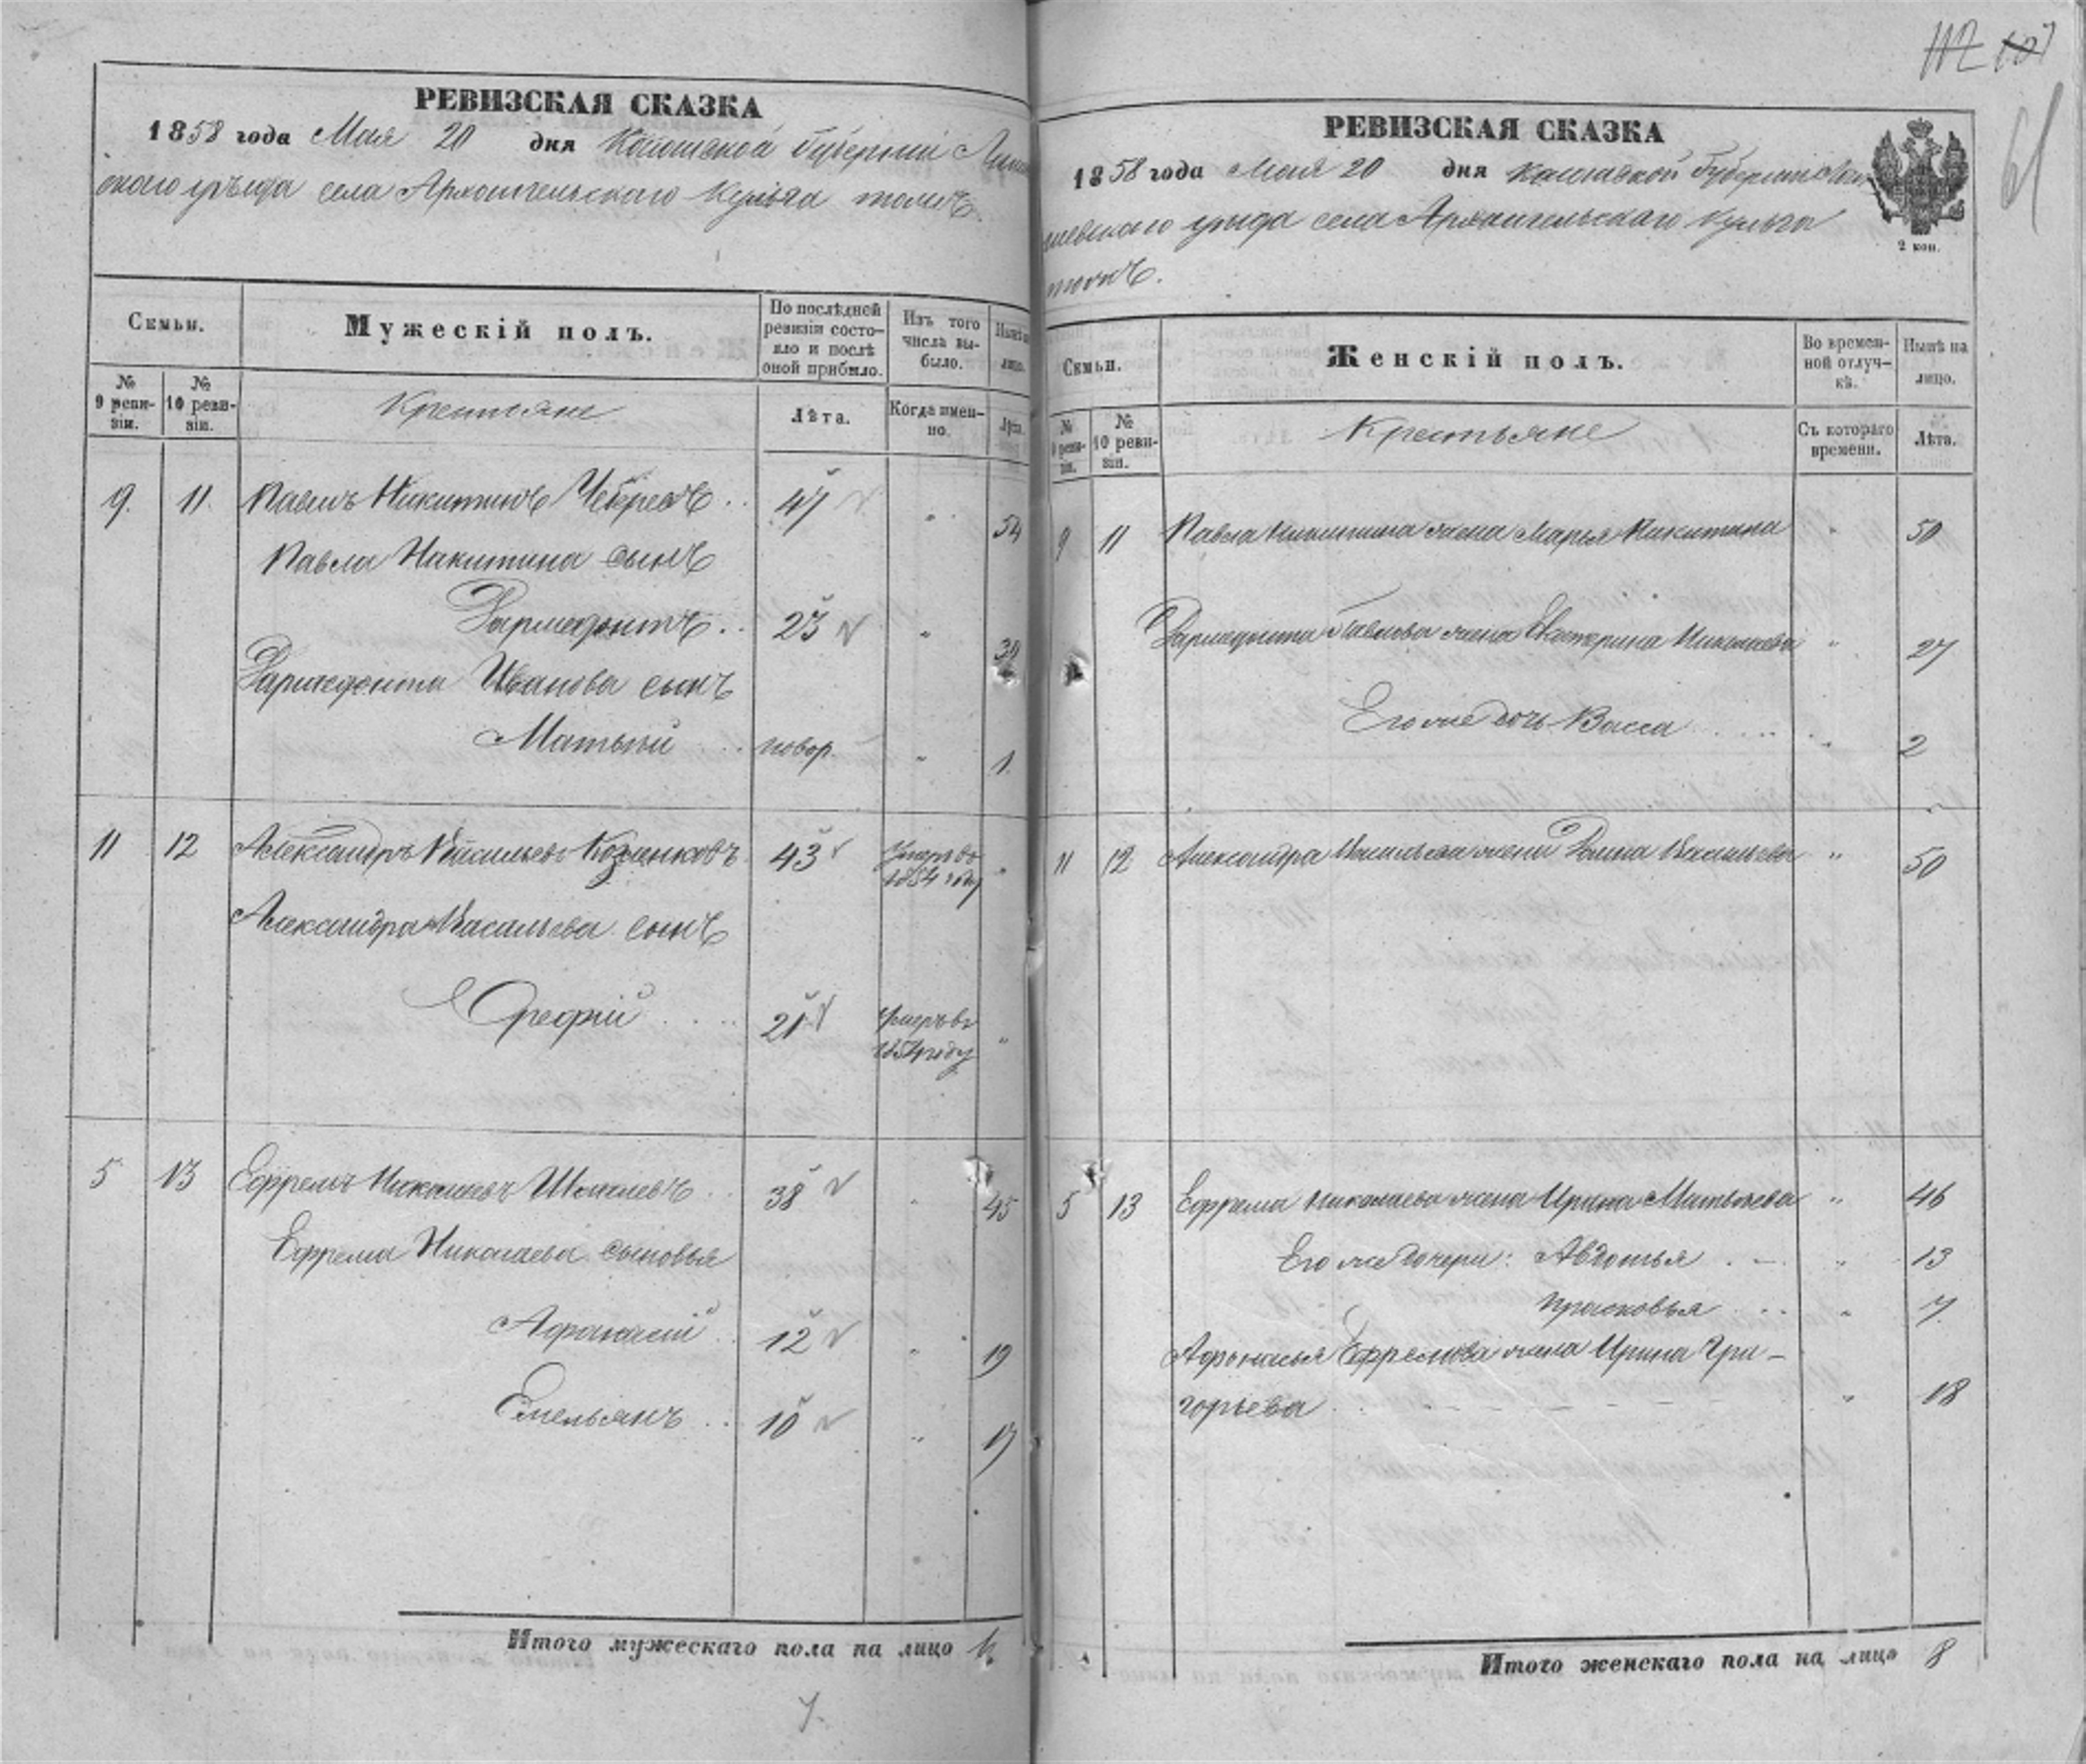 РЕВИЗСКАЯ СКАЗКА
1858 года Мая 20 дня губерніи
села Архангельскаго
Семьи.
Мужескій полъ.
По послѣдней ревизіи состо-
яло и послѣ
оной прибыло.
Изъ того
числа вы-
было.
№
9 реви-
зіи.
№
10 реви-
зіи.
Крестьяне
Лѣта.
Когда имен-
но.
Лѣта.
9. 11. Павелъ Никитинъ 47 54
Павла Никитина сынъ
Фармефонтъ 23
Иванова сынъ
Матвѣй новор. 1.
11 12 Александръ Васильевъ 43 Умеръ въ
1854 году
Александра Васильева сынъ
Орефій 21 Умеръ въ
1854 году
5 13 Ефремъ Николаевъ 38 45
Ефрема Николаева сыновья
Афанасій 12 19
Емельянъ 10 17
Итого мужескаго пола на лицо
7.
112
61
РЕВИЗСКАЯ СКАЗКА
1858 года Мая 20 дня губерніи
уѣзда села Архангельскаго
2 коп.
Семьи.
Женскій полъ.
Во времен-
ной отлуч-
кѣ.
Нынѣ на
лицо.
№
9 реви-
зіи.
№
10 реви-
зіи.
Крестьяне
Съ котораго
времени.
Лѣта.
9 11 Павла Никитина жена Марья Никитина 50
Павлова жена Екатерина Николаева 27
Его же дочь Васса 2
11 12 Александра Васильева жена Васильева 50
5 13 Ефрема Николаева жена Ирина Матвѣева 46
Его же дочери: Авдотья 13
Прасковья 7.
Афонасья Ефремова жена Ирина Гри-
горьева 18
Итого женскаго пола на лицо 8